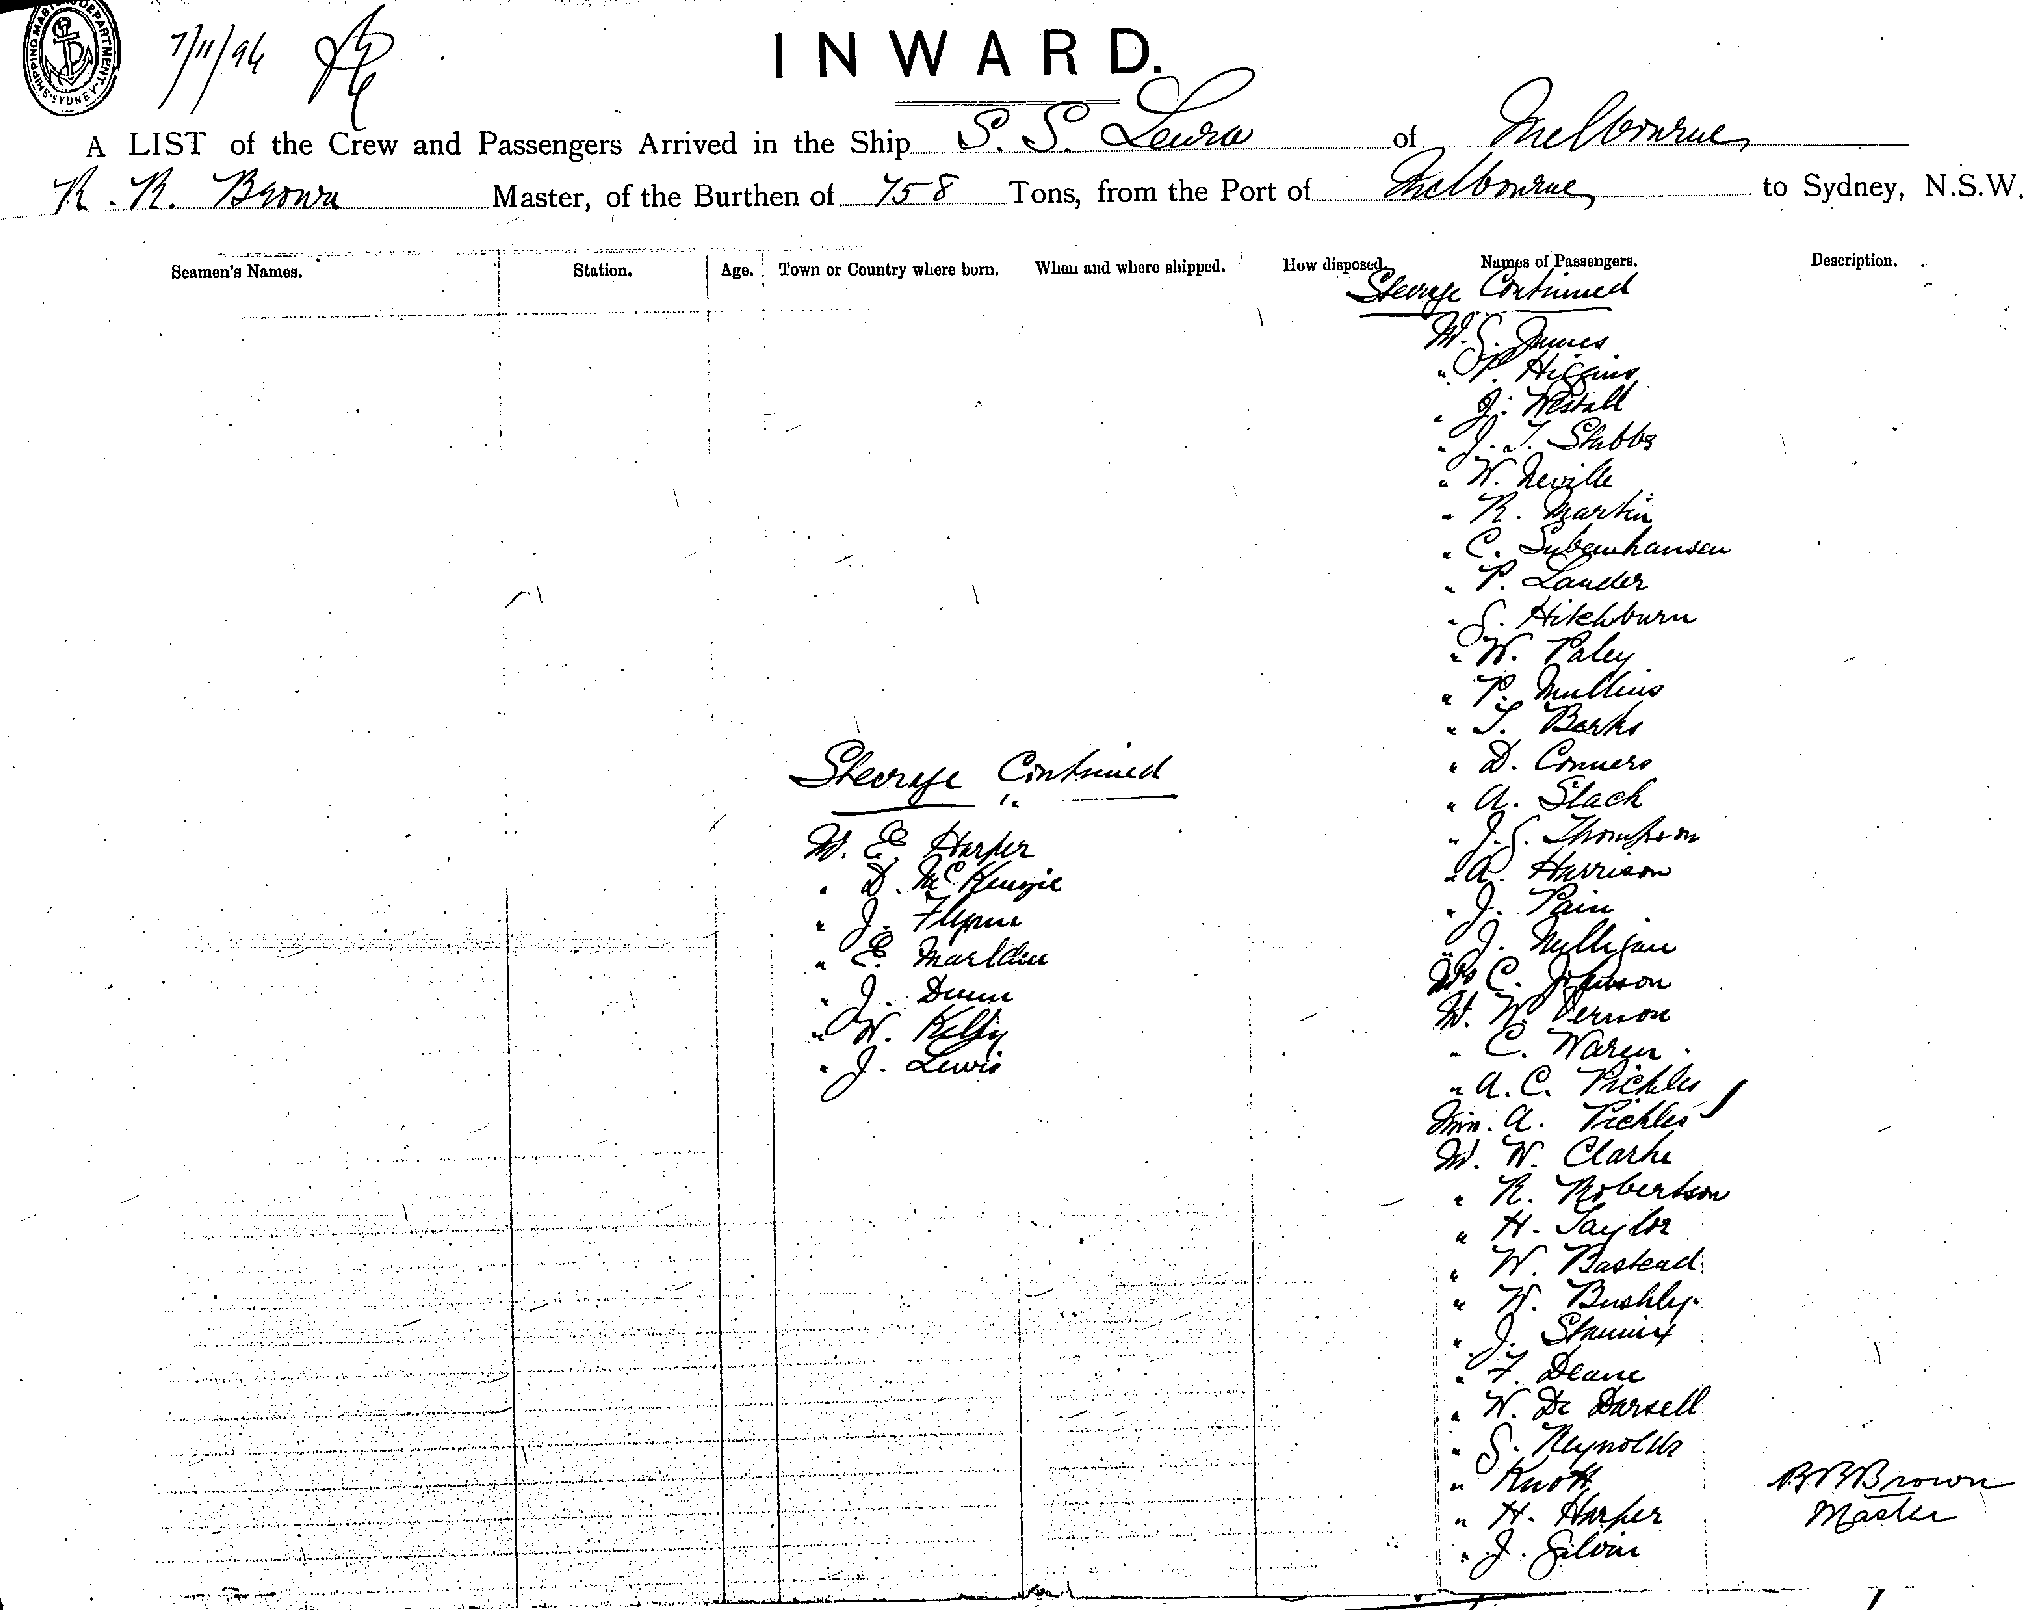 SHIPPING MASTER'S DEPARTMENT SYDNEY
7/11/96
INWARD.
A LIST of the Crew and Passengers Arrived in the Ship S. S. Leura of Melbourne
R. R. Brown Master, of the Burthen of 758 Tons, from the Port of Melbourne to Sydney, N.S.W.
Seamen's Names. Station. Age. Town or Country where born. When and where shipped. How disposed. Names of Passengers. Description.
Steerage Continued
M. G. James
" P. Higgins
" J. Westall
" J. T. Stubbs
" W. Neville
" R. Martin
" C.
" P. Lander
" G. Hitchburn
" W. Paley
" P. Mullins
" T. Barks
" D. Conners
" A. Slack
" J. G. Thompson
" A. Harrison
" J. Pain
" J. Milligan
Mrs C. Johnson
M. W. Vernon
" C. Waren
" A. C. Pickles
A. Pickles
M. W. Clarke
" R. Robertson
" H. Taylor
" W. Bastead
" W. Bushly
" J.
" F. Deane
" W. De Darsell
" G. Reynolds
" Knott
" H. Harper
" J. Gilvin
Steerage Continued
M. E. Harper
" D. McKenzie
" J. Flynn
" E.
" J. Dunn
" W. Kelly
" J. Lewis
R R Brown
Master